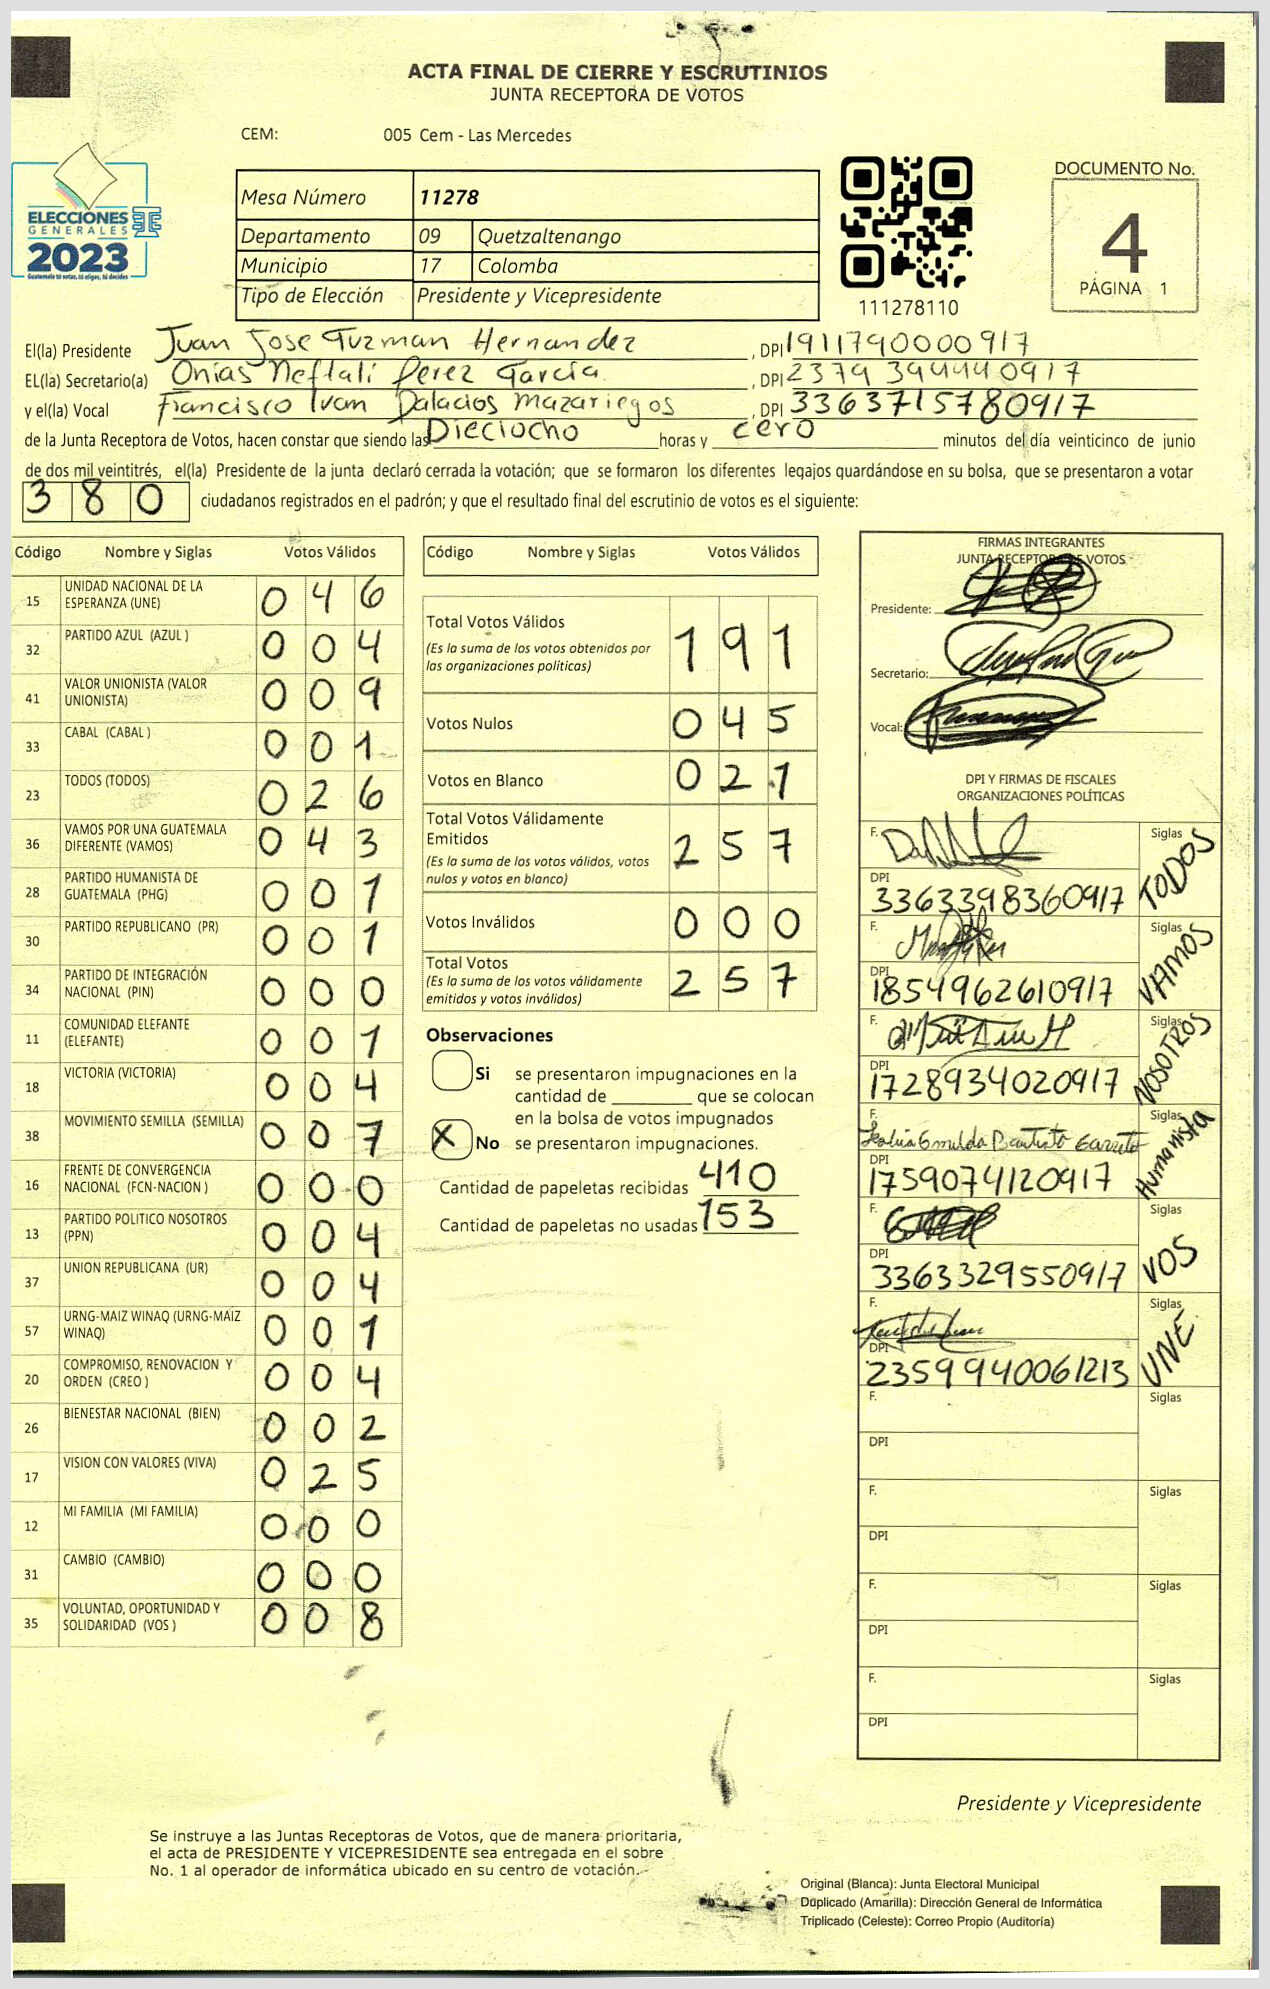 ACTA FINAL DE CIERRE Y ESCRUTINIOS
JUNTA RECEPTORA DE VOTOS
CEM: 005 Cem - Las Mercedes
ELECCIONES
GENERALES
2023
Guatemala tú votas, tú eliges, tú decides
Mesa Número 11278
Departamento 09 Quetzaltenango
Municipio 17 Colomba
Tipo de Elección Presidente y Vicepresidente
111278110
DOCUMENTO No.
4
PÁGINA 1
El(la) Presidente Juan Jose Guzman Hernandez, DPI 1911790000917
EL(la) Secretario(a) Onias Neftali Perez García, DPI 2379394440917
y el(la) Vocal Francisco Ivam Palacios Mazariegos, DPI 3363715780917
de la Junta Receptora de Votos, hacen constar que siendo las Dieciocho horas y cero minutos del día veinticinco de junio
de dos mil veintitrés, el(la) Presidente de la junta declaró cerrada la votación; que se formaron los diferentes legajos guardándose en su bolsa, que se presentaron a votar
380 ciudadanos registrados en el padrón; y que el resultado final del escrutinio de votos es el siguiente:
Código Nombre y Siglas Votos Válidos
15 UNIDAD NACIONAL DE LA ESPERANZA (UNE) 046
32 PARTIDO AZUL (AZUL ) 004
41 VALOR UNIONISTA (VALOR UNIONISTA) 009
33 CABAL (CABAL ) 001
23 TODOS (TODOS) 026
36 VAMOS POR UNA GUATEMALA DIFERENTE (VAMOS) 043
28 PARTIDO HUMANISTA DE GUATEMALA (PHG) 001
30 PARTIDO REPUBLICANO (PR) 001
34 PARTIDO DE INTEGRACIÓN NACIONAL (PIN) 000
11 COMUNIDAD ELEFANTE (ELEFANTE) 001
18 VICTORIA (VICTORIA) 004
38 MOVIMIENTO SEMILLA (SEMILLA) 007
16 FRENTE DE CONVERGENCIA NACIONAL (FCN-NACION ) 000
13 PARTIDO POLITICO NOSOTROS (PPN) 004
37 UNION REPUBLICANA (UR) 004
57 URNG-MAIZ WINAQ (URNG-MAIZ WINAQ) 001
20 COMPROMISO, RENOVACION Y ORDEN (CREO ) 004
26 BIENESTAR NACIONAL (BIEN) 002
17 VISION CON VALORES (VIVA) 025
12 MI FAMILIA (MI FAMILIA) 000
31 CAMBIO (CAMBIO) 000
35 VOLUNTAD, OPORTUNIDAD Y SOLIDARIDAD (VOS ) 008
Código Nombre y Siglas Votos Válidos
Total Votos Válidos 191
(Es la suma de los votos obtenidos por
las organizaciones políticas)
Votos Nulos 045
Votos en Blanco 021
Total Votos Válidamente
Emitidos 257
(Es la suma de los votos válidos, votos
nulos y votos en blanco)
Votos Inválidos 000
Total Votos 257
(Es la suma de los votos válidamente
emitidos y votos inválidos)
Observaciones
Si se presentaron impugnaciones en la
cantidad de ________ que se colocan
en la bolsa de votos impugnados
X No se presentaron impugnaciones.
Cantidad de papeletas recibidas 410
Cantidad de papeletas no usadas 153
FIRMAS INTEGRANTES
JUNTA RECEPTORA DE VOTOS
Presidente:
Secretario:
Vocal:
DPI Y FIRMAS DE FISCALES
ORGANIZACIONES POLÍTICAS
F. Siglas TODOS
DPI 3363398360917
F. Siglas VAMOS
DPI 1854962610917
F. Siglas NOSOTROS
DPI 1728934020917
F. Emilda Bautista Siglas Humanista
DPI 1759074120917
F. Siglas VOS
DPI 3363329550917
F. Siglas UNE
DPI 2359940061213
F. Siglas
DPI
F. Siglas
DPI
F. Siglas
DPI
F. Siglas
DPI
Presidente y Vicepresidente
Se instruye a las Juntas Receptoras de Votos, que de manera prioritaria,
el acta de PRESIDENTE Y VICEPRESIDENTE sea entregada en el sobre
No. 1 al operador de informática ubicado en su centro de votación.
Original (Blanca): Junta Electoral Municipal
Duplicado (Amarilla): Dirección General de Informática
Triplicado (Celeste): Correo Propio (Auditoría)